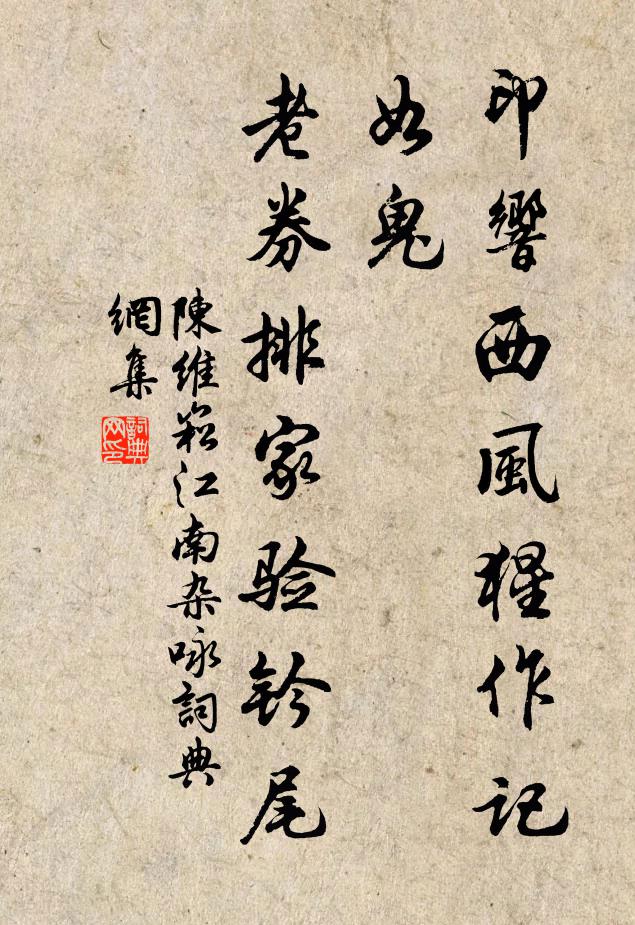 印響西風猩作記
如鬼
老券排家验鈐尾
陳維崧江南杂咏詞典
網集
詞典网印